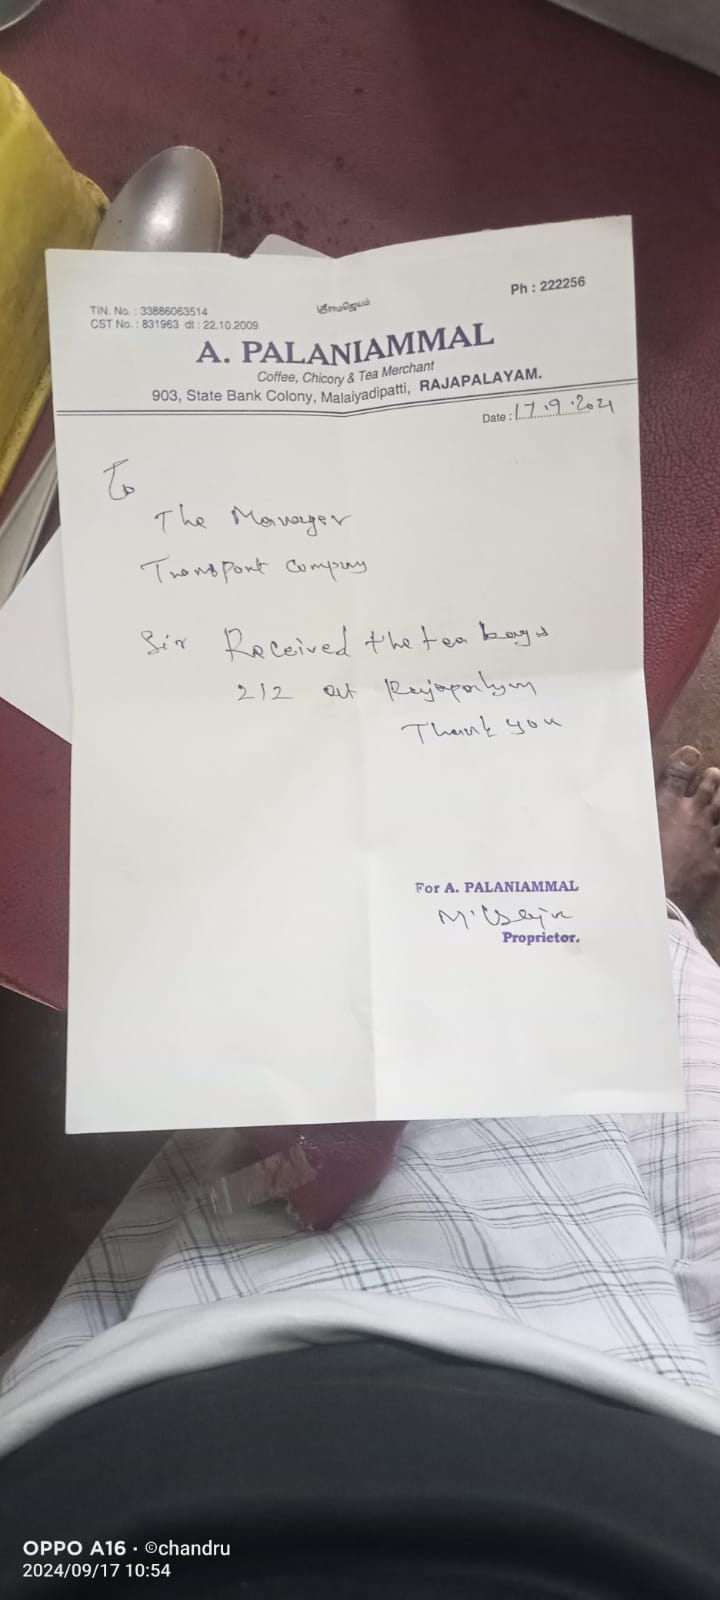 TIN. No. : 33886063514
CST No. : 831963 dt : 22.10.2009
ஸ்ரீராமஜெயம்
Ph : 222256
A. PALANIAMMAL
Coffee, Chicory & Tea Merchant
903, State Bank Colony, Malaiyadipatti, RAJAPALAYAM.
Date : 17.9.2024
To
The Manager
Transport Company
Sir Received the tea bags
212 at Rajapalym
Thank you
For A. PALANIAMMAL
Proprietor.
OPPO A16 · ©chandru
2024/09/17 10:54